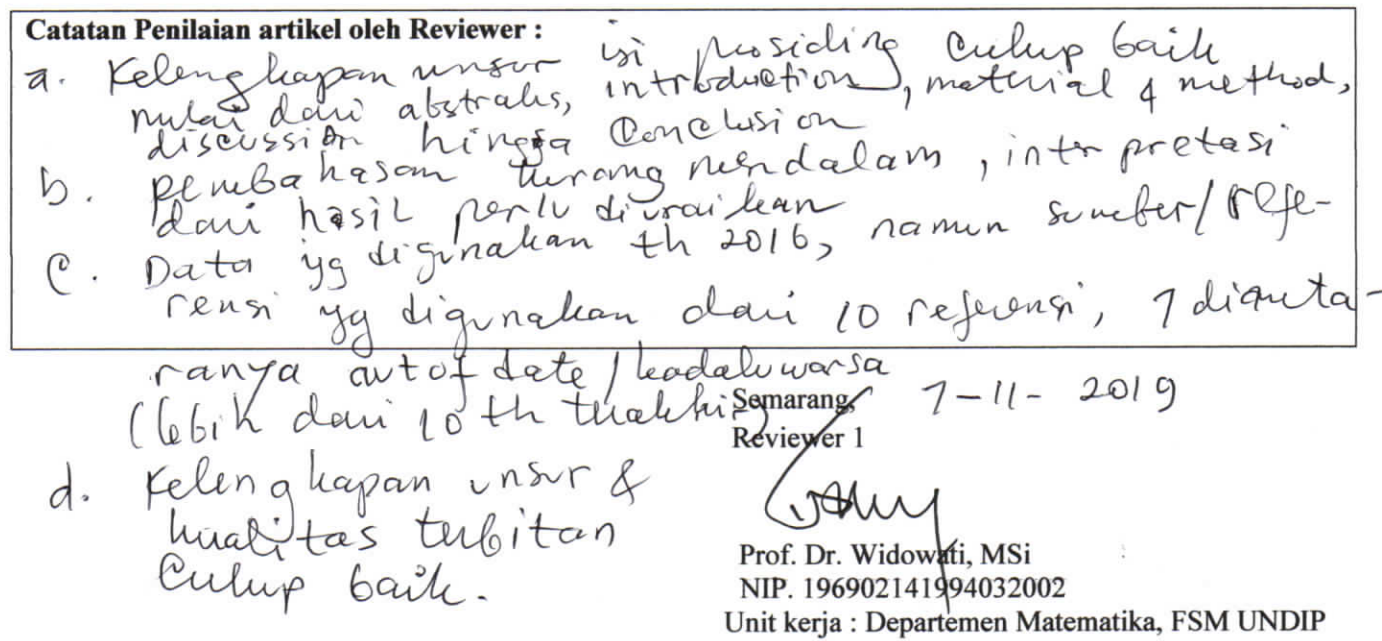 Catatan Penilaian artikel oleh Reviewer :
a. Kelengkapan unsur isi prosiding cukup baik
mulai dari abstraks, introduction, material & method,
discussion hingga Conclusion
b. pembahasan kurang mendalam, interpretasi
dari hasil perlu diuraikan
c. Data yg digunakan th 2016, namun sumber/refe-
rensi yg digunakan dari 10 referensi, 7 dianta-
ranya out of date/kadaluwarsa
(lebih dari 10 th terakhir)
Semarang, 7-11-2019
Reviewer 1
d. Kelengkapan unsur &
kualitas terbitan
Cukup baik.
Prof. Dr. Widowati, MSi
NIP. 196902141994032002
Unit kerja : Departemen Matematika, FSM UNDIP